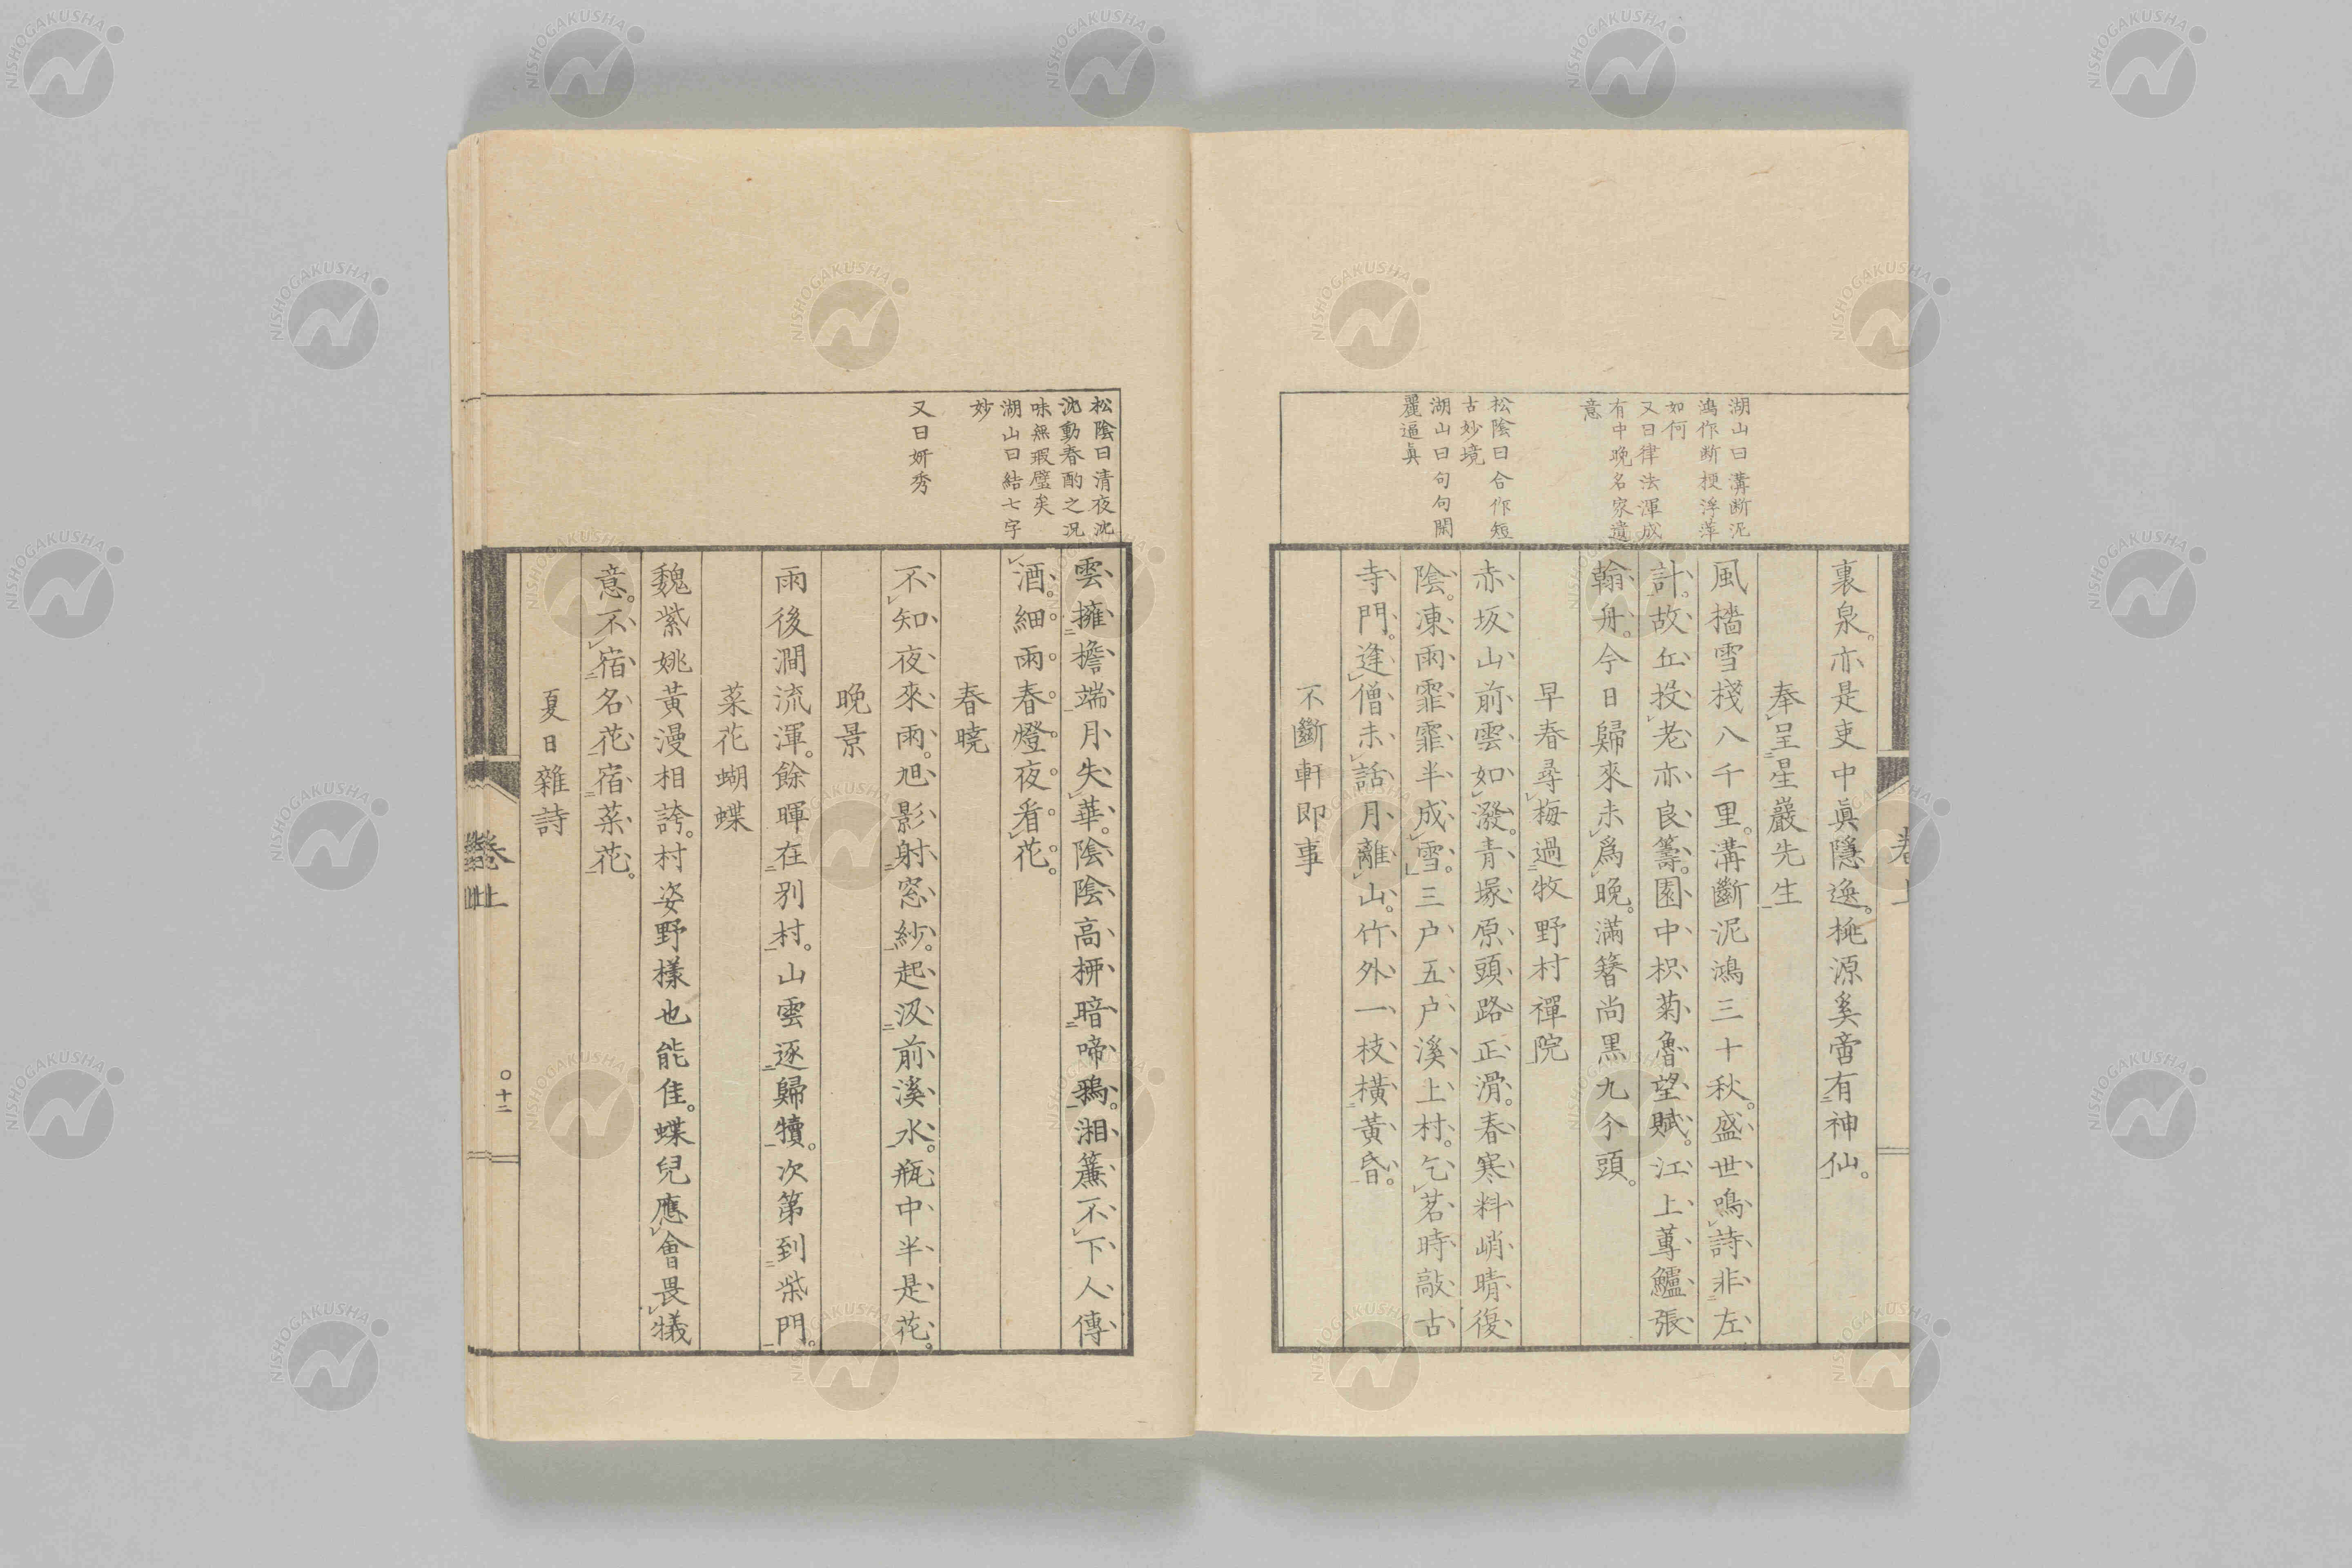 湖山曰溝斷泥
鴻作斷梗浮萍
如何
又曰律法渾成
有中晚名家遺
意
松陰曰合作短
古妙境
湖山曰句句閑
麗逼眞
裏泉。亦是吏中眞隱逸。桃源奚啻有神仙。
奉呈星巖先生
風檣雪棧八千里。溝斷泥鴻三十秋。盛世鳴詩非左
計。故丘投老亦良籌。園中枳菊魯望賦。江上蓴鱸張
翰舟。今日歸來未爲晚。滿簪尚黑九分頭。
早春尋梅過牧野村禪院
赤坂山前雲如潑。青塚原頭路正滑。春寒料峭晴復
陰。凍雨霏霏半成雪。三戸五戸溪上村。乞茗時敲古
寺門。逢僧未話月離山。竹外一枝橫黃昏。
不斷軒即事
松陰曰清夜沈
沈動春酌之況
味無瑕璧矣
湖山曰結七字
妙
又曰妍秀
雲擁檐端月失華。陰陰高柳暗啼鴉。湘簾不下人傳
酒。細雨春燈夜看花。
春曉
不知夜來雨。旭影射窓紗。起汲前溪水。瓶中半是花。
晚景
雨後澗流渾。餘暉在別村。山雲逐歸犢。次第到柴門。
菜花蝴蝶
魏紫姚黃漫相誇。村姿野樣也能佳。蝶兒應會畏犧
意。不宿名花宿菜花。
夏日雜詩
卷上
〇十二